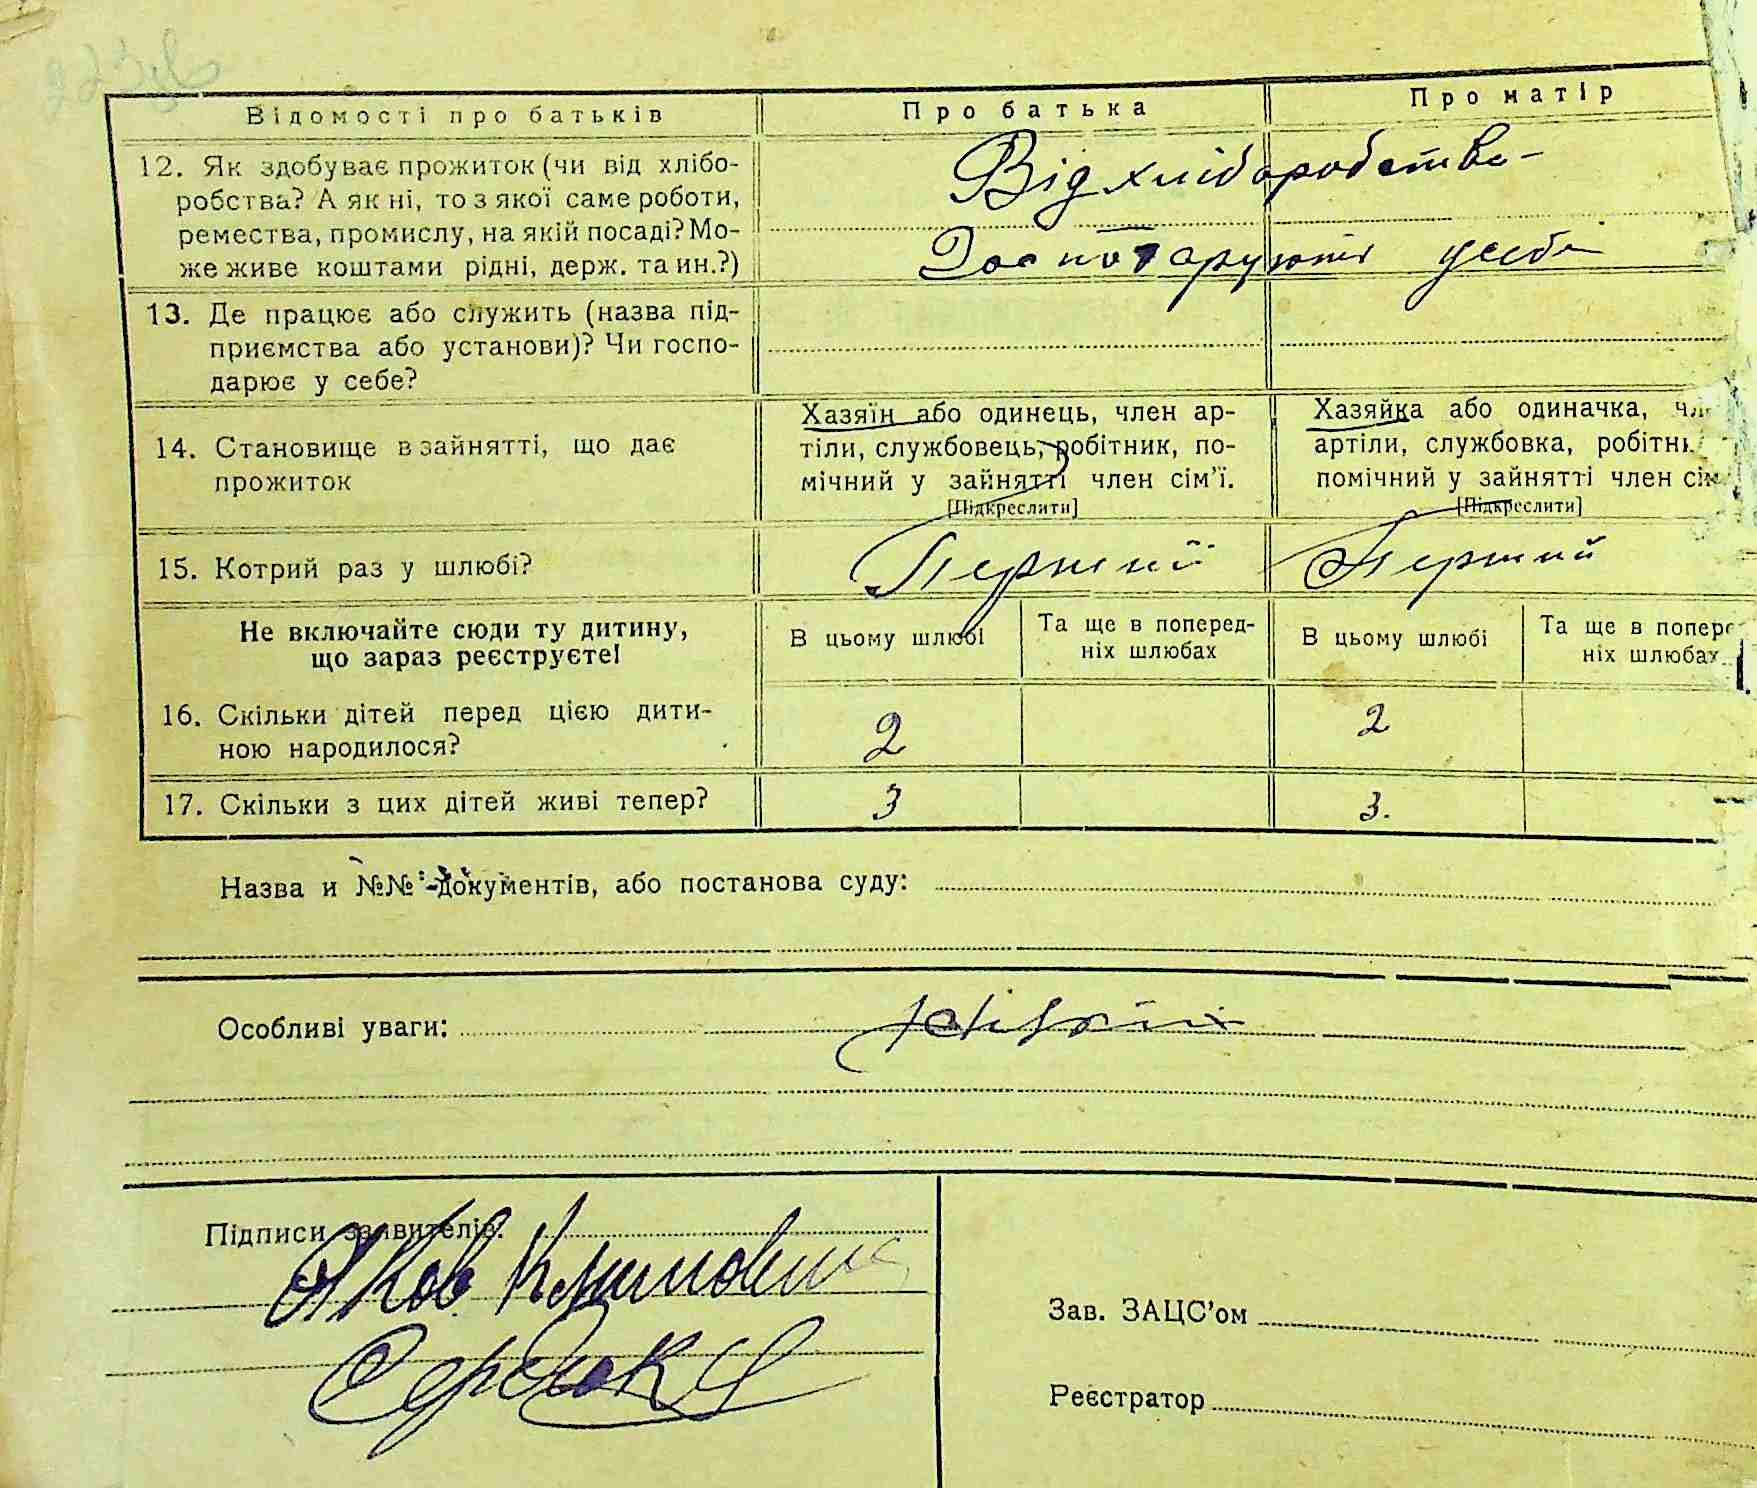 Відомості про батьків
Про батька
Про матір
12. Як здобуває прожиток (чи від хлібо-
робства? А як ні, то з якої саме роботи,
ремества, промислу, на якій посаді? Мо-
же живе коштами рідні, держ. та ин.?)
Від хліборобства
Господарують у себе
13. Де працює або служить (назва під-
приємства або установи)? Чи госпо-
дарює у себе?
14. Становище в зайнятті, що дає
прожиток
Хазяїн або одинець, член ар-
тіли, службовець, робітник, по-
мічний у зайнятті член сім’ї.
[Підкреслити]
Хазяйка або одиначка, чл
артіли, службовка, робітн
помічний у зайнятті член сім
[Підкреслити]
15. Котрий раз у шлюбі?
Перший
Перший
Не включайте сюди ту дитину,
що зараз реєструєте!
В цьому шлюбі
Та ще в поперед-
ніх шлюбах
В цьому шлюбі
Та ще в попере
ніх шлюбах
16. Скільки дітей перед цією дити-
ною народилося?
2
2
17. Скільки з цих дітей живі тепер?
3
3.
Назва и №№ документів, або постанова суду:
Особливі уваги:
Підписи заявителів:
Яков
Сердюк Я
Зав. ЗАЦС’ом
Реєстратор